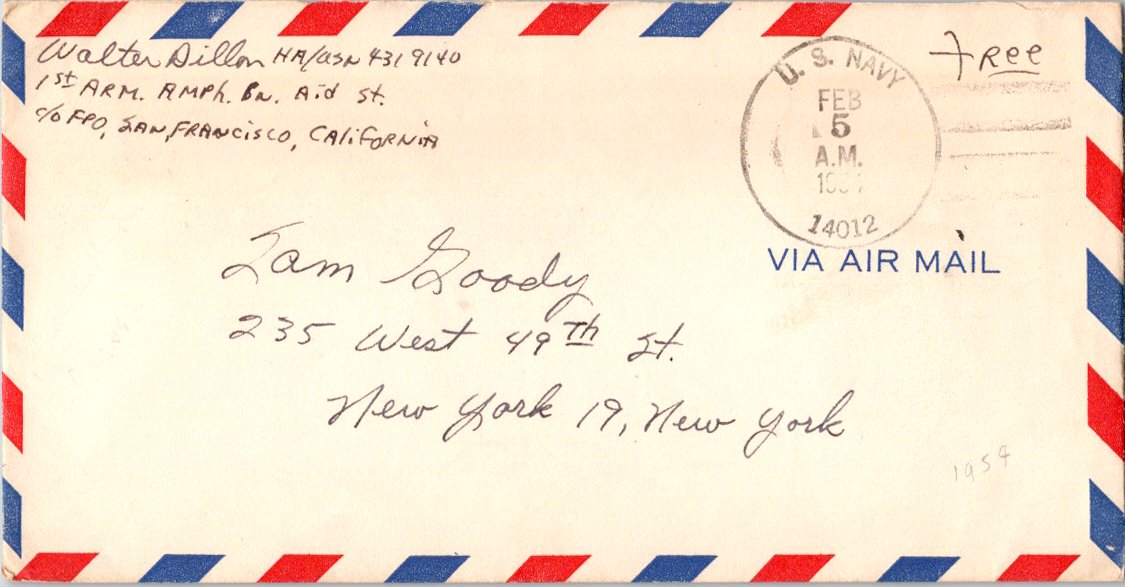 Walter Dillon HA/USN 4319140
1st ARM. AMPh. Bn. Aid St.
c/o FPO, SAN, FRANCISCO, CALiFORNiA
Free
U. S. NAVY
FEB
5
A.M.
14012
VIA AIR MAIL
Sam Goody
235 West 49th St.
New York 19, New York
1954